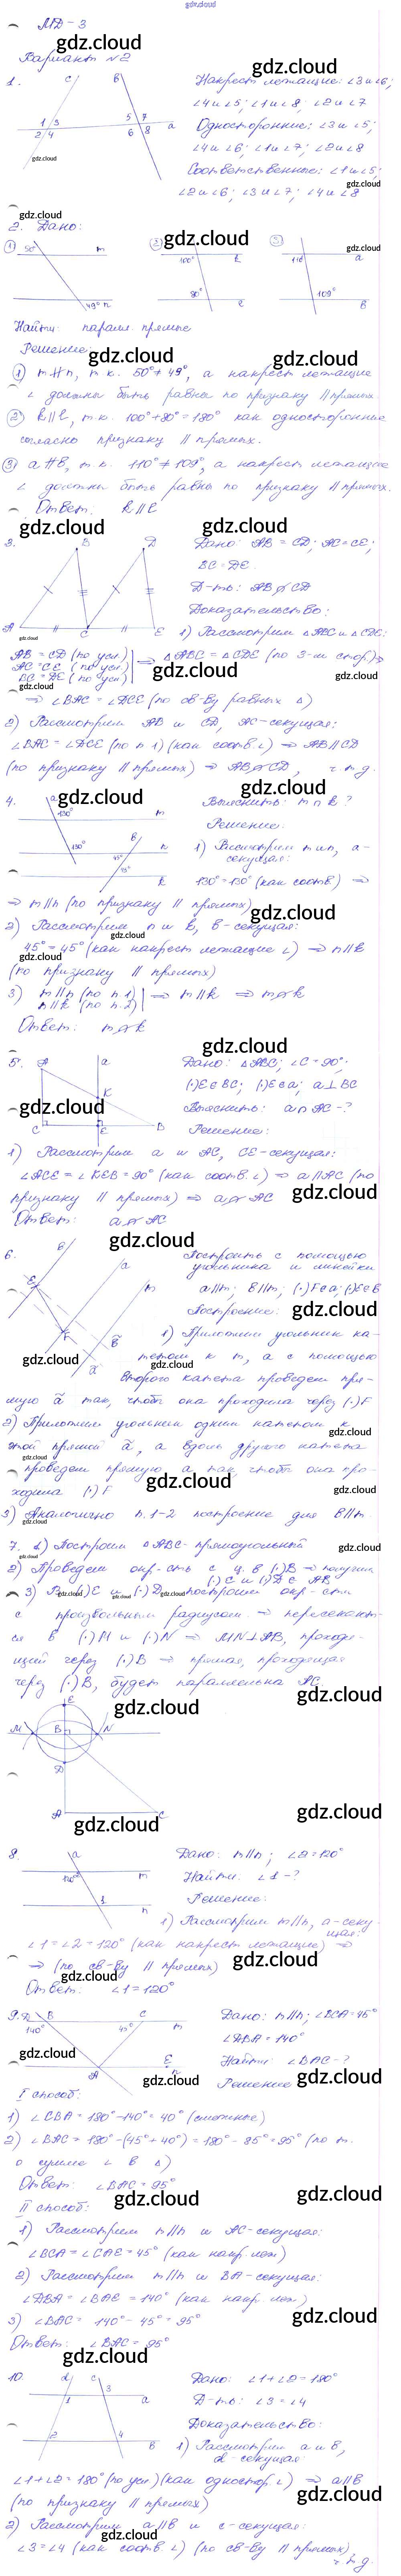 gdz.cloud
МД-3
Вариант №2
1.
Накрест лежащие: ∠3 и ∠6;
∠4 и ∠5; ∠1 и ∠8, ∠2 и ∠7
Односторонние: ∠3 и ∠5;
∠4 и ∠6; ∠1 и ∠7; ∠2 и ∠8
Соответственные: ∠1 и ∠5;
∠2 и ∠6; ∠3 и ∠7; ∠4 и ∠8
2. Дано:
Найти: паралл. прямые
Решение:
① m∦n, т.к. 50°≠49°, а накрест лежащие
∠ должны быть равны по признаку || прямых.
② k||l, т.к. 100°+80°=180° как односторонние
согласно признаку || прямых.
③ a∦b, т.к. 110°≠109°, а накрест лежащие
∠ должны быть равны по признаку || прямых.
Ответ: k||l
3.
Дано: AB = CD; AC = CE;
BC = DE.
Д-ть: AB ∦ CD
Доказательство:
1) Рассмотрим △ABC и △CDE:
AB = CD (по усл)
AC = CE (по усл) ⇒ △ABC = △CDE (по 3-м стор) ⇒
BC = DE (по усл)
⇒ ∠BAC = ∠DCE (по св-ву равных △)
2) Рассмотрим AB и CD, AC-секущая:
∠BAC = ∠DCE (по п 1) (как соотв. ∠) ⇒ AB||CD
(по признаку || прямых) ⇒ ч.т.д.
4.
Выяснить: m∩k ?
Решение:
1) Рассмотрим m и n, a-
секущая:
130°=130° (как соотв) ⇒
⇒ m||n (по признаку || прямых)
2) Рассмотрим n и k, b-секущая:
45°=45° (как накрест лежащие ∠) ⇒ n||k
(по признаку || прямых)
3) m||n (по п.1)
n||k (по п.2) ⇒ m||k ⇒
Ответ:
5.
Дано: △ABC; ∠C = 90°;
(·)E∈BC; (·)E∈a; a⊥BC
Выяснить: a∩AC-?
Решение:
1) Рассмотрим a и AC, CE-секущая:
∠ACE = ∠KEB = 90° (как соотв. ∠) ⇒ a||AC (по
признаку || прямых) ⇒
Ответ:
6.
Построить с помощью
угольника и линейки
a||m; b||m; (·)F∈a; (·)E∈b
Построение:
1) Приложим угольник ка-
тетом к m, а с помощью
второго катета проведем пря-
мую ã так, чтобы она проходила через (·)F
2) Приложим угольник одним катетом к
этой прямой ã, а вдоль другого катета
проведем прямую a так, чтобы она про-
ходила (·)F
3) Аналогично п.1-2 построение для b||m.
7. 1) Построим △ABC-прямоугольный
2) Проведем окр-сть с ц. в (·)B ⇒ получим
(·)E и (·)D ∈ AB
3) В (·)E и (·)D построим окр-сти
с произвольным радиусом ⇒ пересекают-
ся в (·)M и (·)N ⇒ MN⊥AB, проходя-
щий через (·)B ⇒ прямая, проходящая
через (·)B, будет параллельна AC.
8.
Дано: m||n; ∠2=120°
Найти: ∠1-?
Решение:
1) Рассмотрим m||n, a-секу-
щая:
∠1 = ∠2 = 120° (как накрест лежащие) ⇒
⇒ (по св-ву || прямых)
Ответ: ∠1=120°
9.
Дано: m||n; ∠BCA=45°
∠DBA = 140°
Найти: ∠BAC-?
Решение
I способ:
1) ∠CBA = 180°-140° = 40° (смежные)
2) ∠BAC = 180°-(45°+40°) = 180°-85°=95° (по т.
о сумме ∠ в △)
Ответ: ∠BAC = 95°
II способ:
1) Рассмотрим m||n и AC-секущая:
∠BCA = ∠CAE = 45° (как накр. леж)
2) Рассмотрим m||n и BA-секущая:
∠DBA = ∠BAE = 140° (как накр. леж)
3) ∠BAC = 140°-45°=95°
Ответ: ∠BAC = 95°
10.
Дано: ∠1+∠2=180°
Д-ть: ∠3=∠4
Доказательство:
1) Рассмотрим a и b,
d-секущая:
∠1+∠2=180° (по усл) (как одностор. ∠) ⇒ a||b
(по признаку || прямых)
2) Рассмотрим a||b и c-секущая:
∠3=∠4 (как соотв. ∠) (по св-ву || прямых)
ч.т.д.